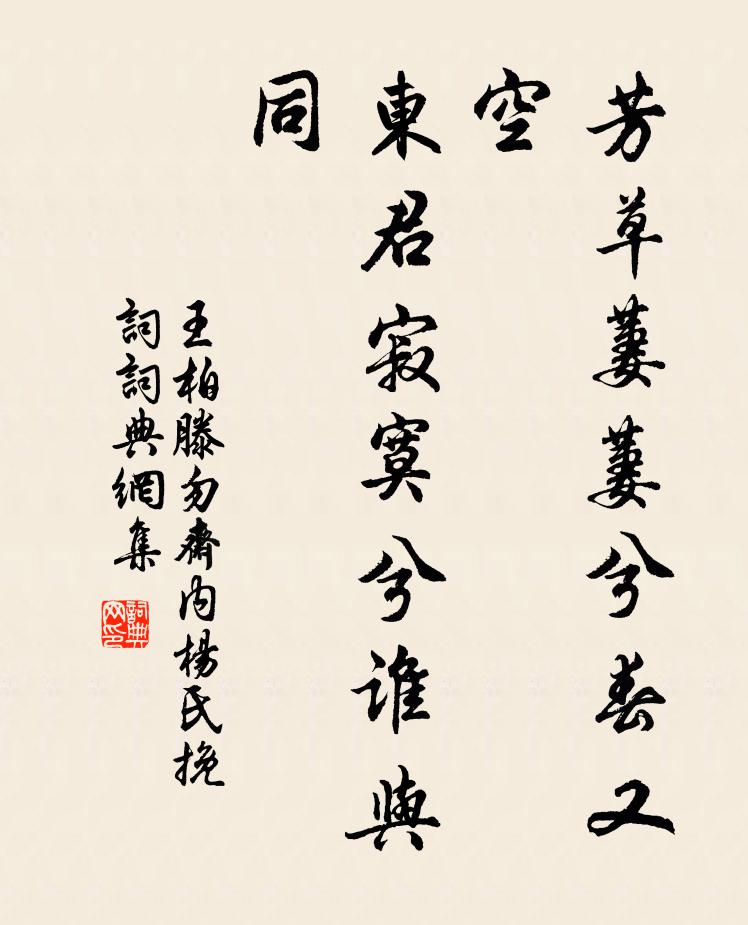 芳草萋萋兮春又
空
東君寂寞兮誰與
同
王柏滕勿齋内楊氏挽
詞詞典網集
詞典网印